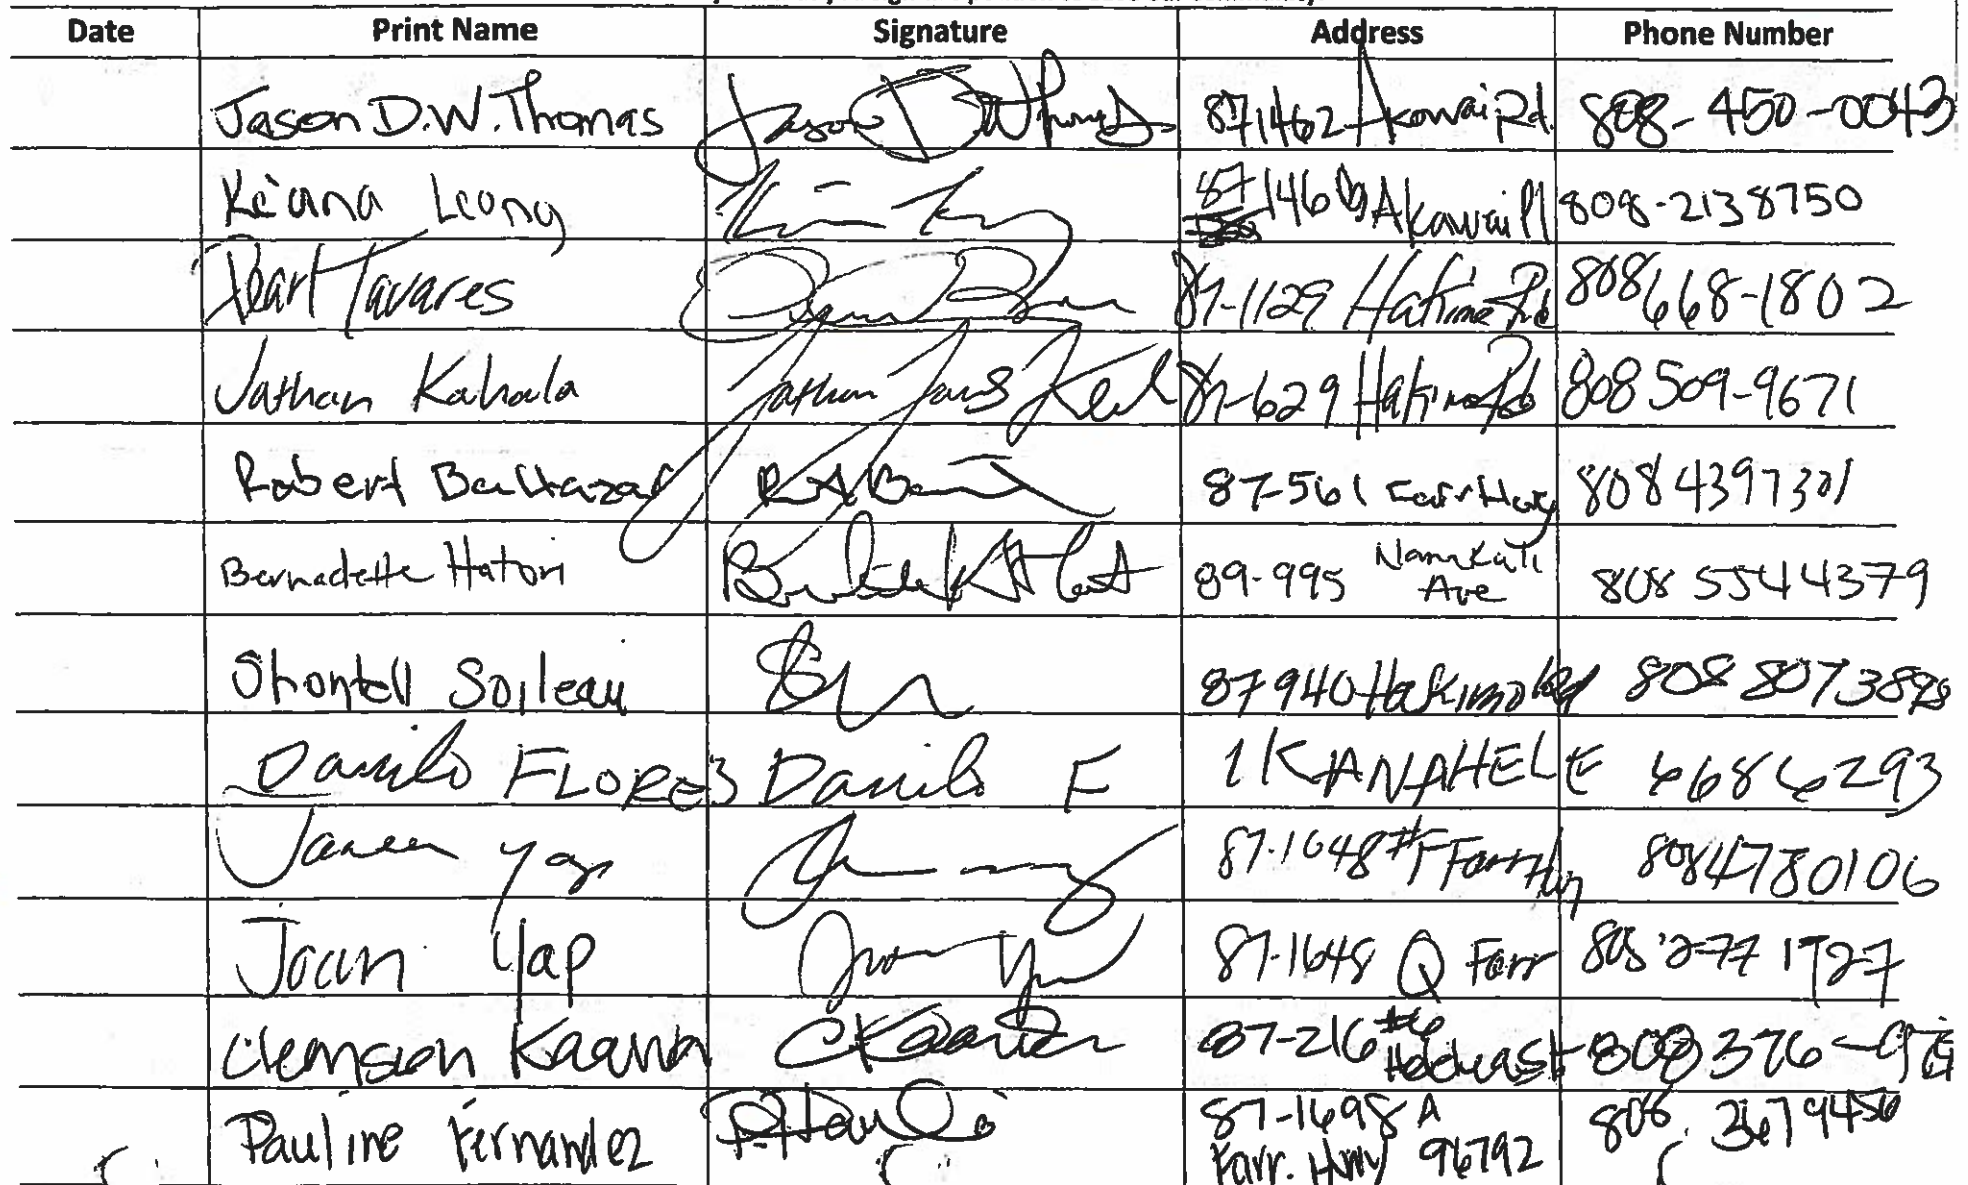 Date Print Name Signature Address Phone Number
Jason D.W. Thomas Jason D W Thomas 871462 Akowai Rd. 808-450-0043
Ke'ana Leong 87 146 Akowai Pl 808-2138750
Pearl Tavares 87-1129 Hakimo Rd 808 668-1802
Jathan Kahala Jathan 87-629 Hakimo Rd 808 509-9671
Robert Baltazar 87-561 Farr Hwy 808 4397301
Bernadette Hatori 89-995 Nanakuli Ave 808 5544379
Shontell Soileau 87 940 Hakimo Rd 808 80738
Danilo FLORES Danilo F 1 KANAHELE 6686293
Yap 87-1648 # Farr Hwy 8084780106
Joan Yap Joan Yap 87-1648 Q Farr 808 277 1927
Clemsion Kaawa CKaawa 87-216 #6 808 376-
Pauline Fernandez 87-1698 A Farr. Hwy 96792 808 3679456